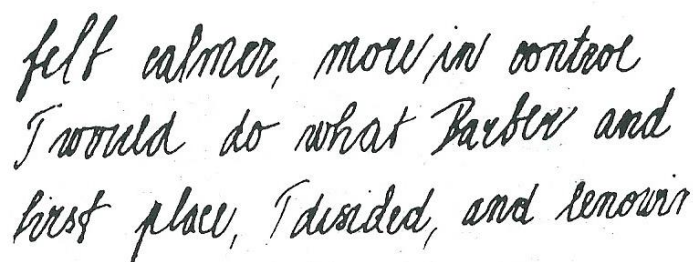 felt calmer, more in control
I would do what Barber and
first place, I disided, and